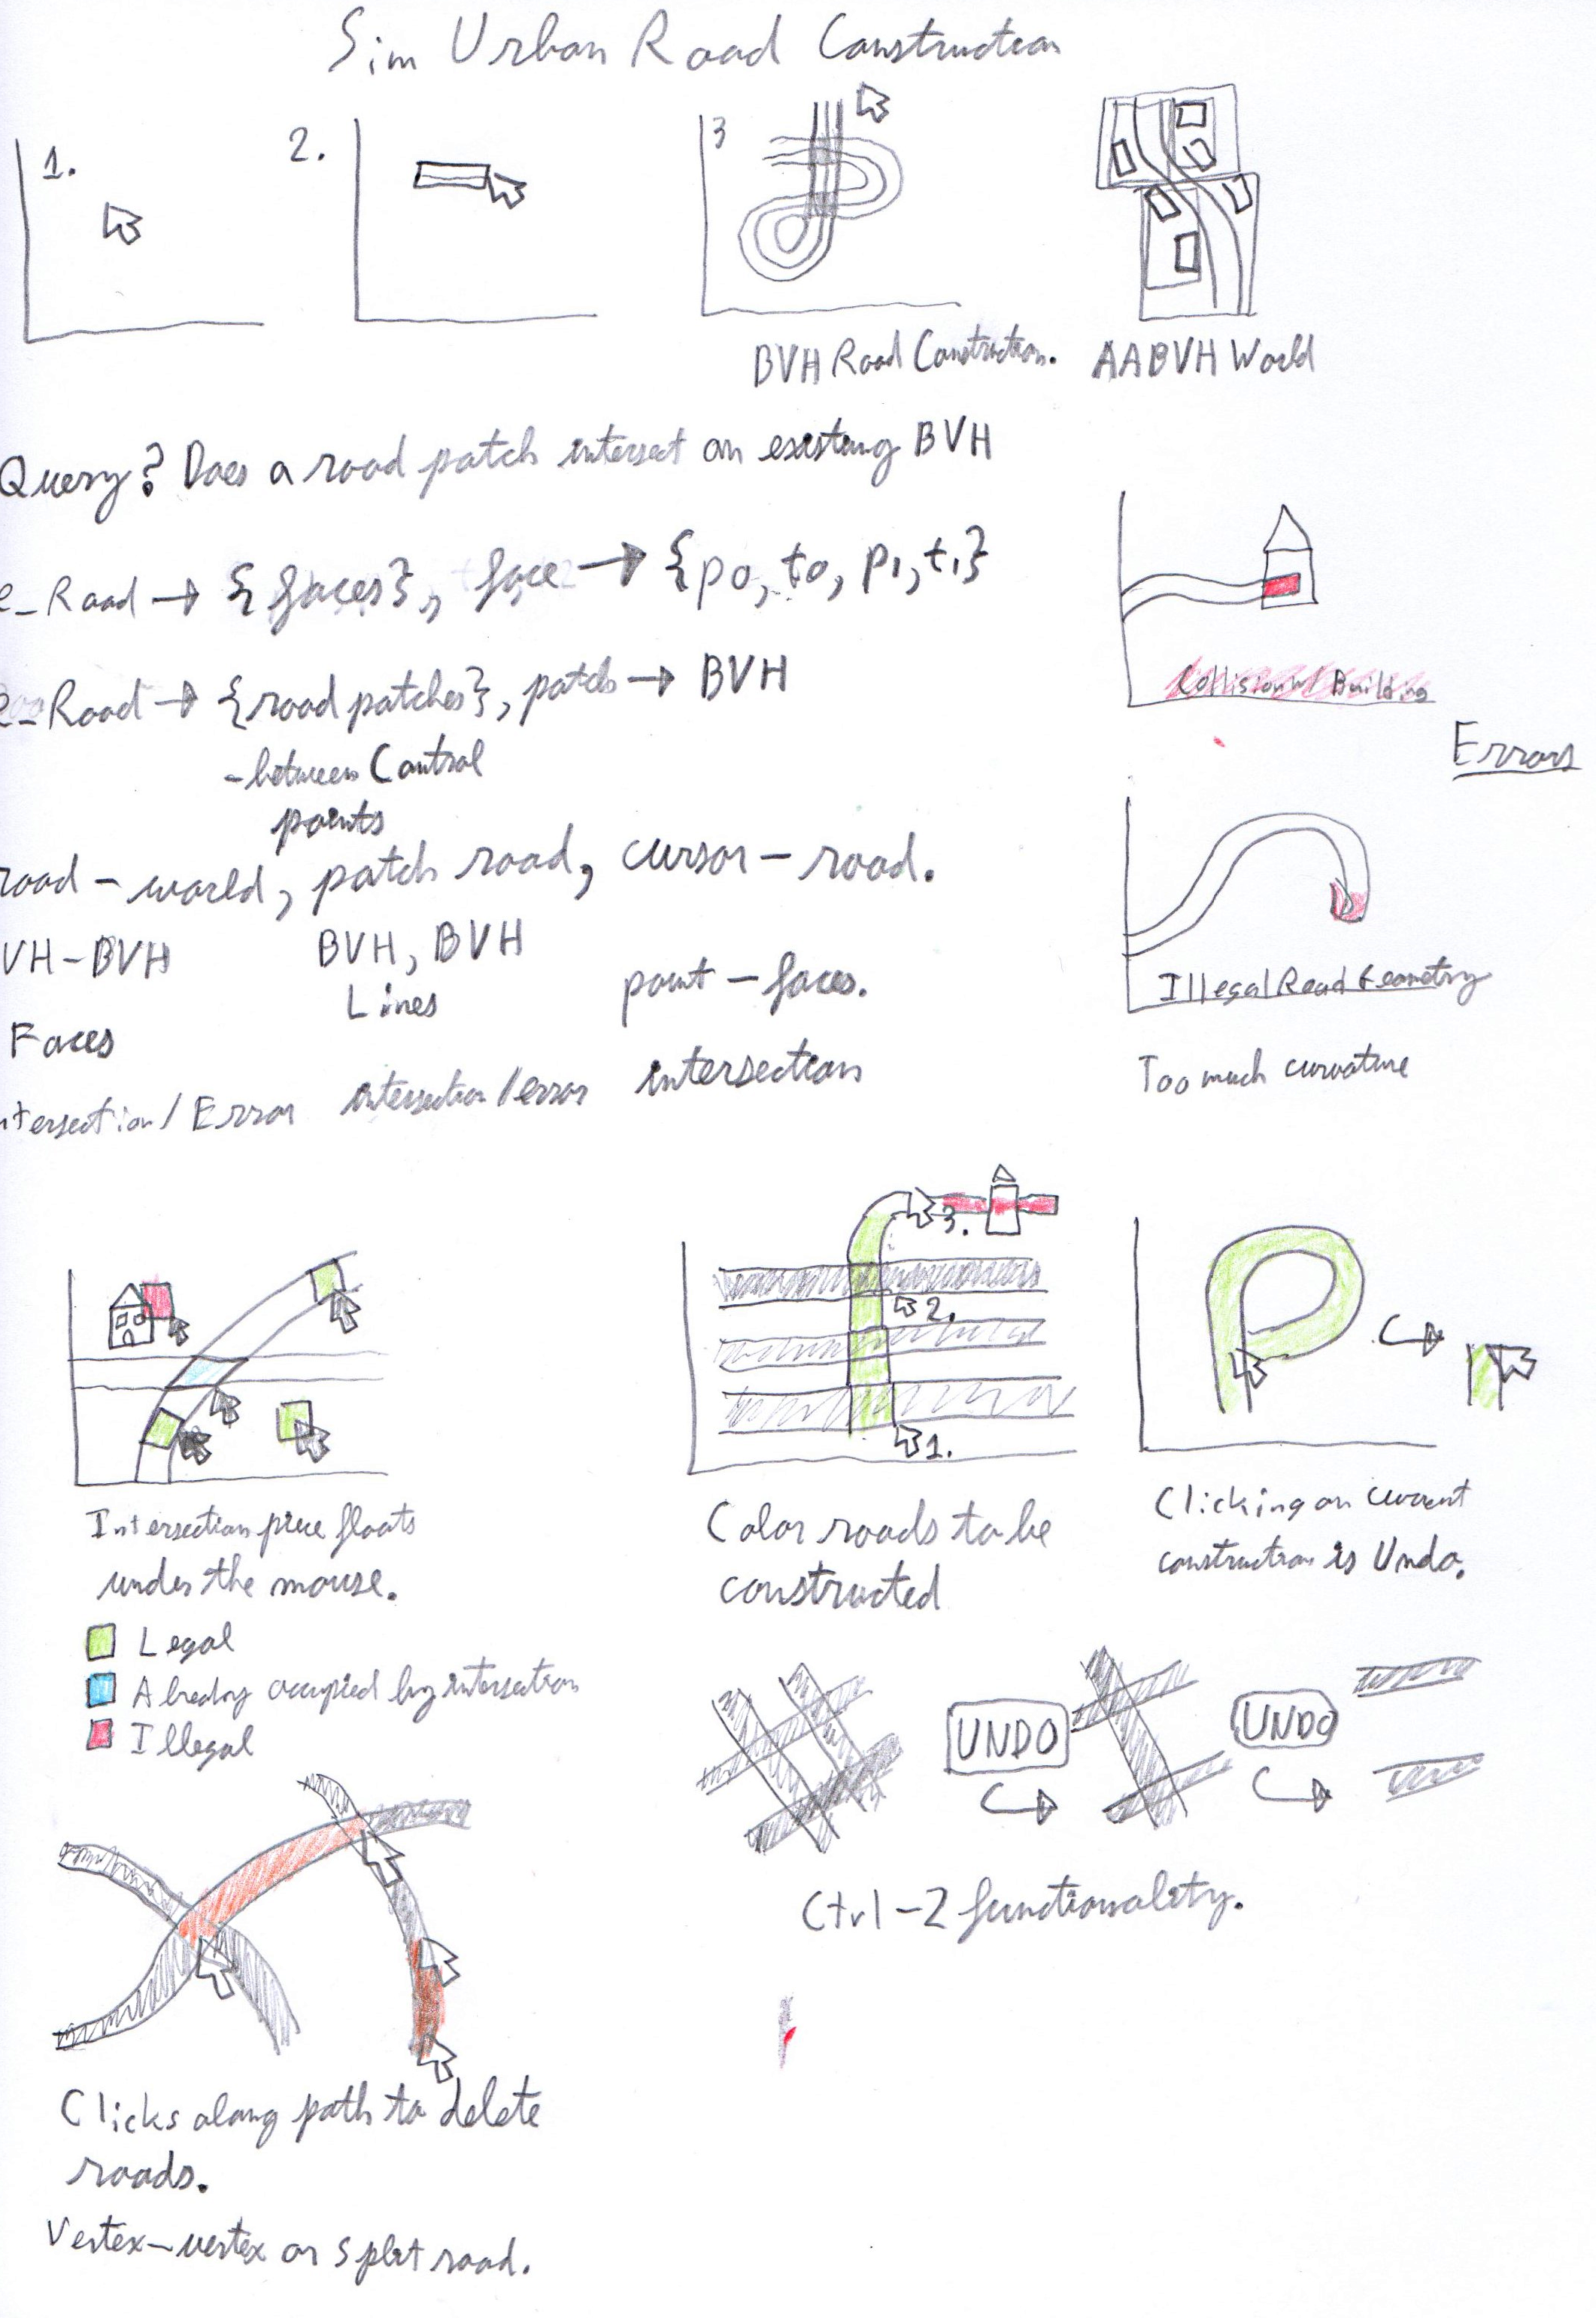 Sim Urban Road Construction
1.
2.
3
BVH Road Construction.
AABVH World
Query? Does a road patch intersect an existing BVH
e_Road → {faces}, face → {p0, t0, p1, t1}
e_Road → {road patches}, patch → BVH
-between Control
points
road - world, patch road, cursor - road.
VH-BVH
BVH, BVH
Lines
point - faces.
Faces
ntersection / Error
intersection / error
intersection
Collision w/ Building
Errors
Illegal Road Geometry
Too much curvature
Intersection piece floats
under the mouse.
Legal
Already occupied by intersection
Illegal
3.
2.
1.
Color roads to be
constructed
Clicking on current
construction is Undo.
UNDO
UNDO
Ctrl-Z functionality.
Clicks along path to delete
roads.
Vertex-vertex or split road.